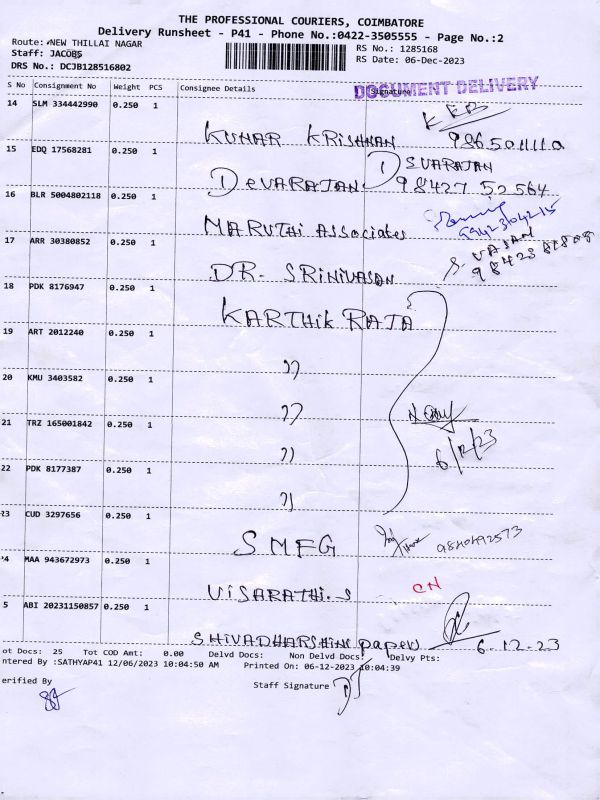 THE PROFESSIONAL COURIERS, COIMBATORE
Delivery Runsheet - P41 - Phone No.:0422-3505555 - Page No.:2
Route: NEW THILLAI NAGAR
Staff: JACOBS
RS No.: 1285168
DRS No.: DCJB128516802
RS Date: 06-Dec-2023
DOCUMENT DELIVERY
S No Consignment No Weight PCS Consignee Details Signature
14 SLM 334442990 0.250 1
KUMAR KRISHNAN
15 EDQ 17568281 0.250 1
DEVARAJAN 98427 52564
16 BLR 5004802118 0.250 1
MARUTHI ASSOCIATES
17 ARR 30380852 0.250 1
DR. SRINIVASAN
18 PDK 8176947 0.250 1
KARTHIK RAJA
19 ART 2012240 0.250 1
"
20 KMU 3403582 0.250 1
"
21 TRZ 165001842 0.250 1
"
6/12/23
22 PDK 8177387 0.250 1
"
23 CUD 3297656 0.250 1
SMFG 9840492573
24 MAA 943672973 0.250 1
VISARATHI.S CN
5 ABI 20231150857 0.250 1
SHIVADHARSHINI papers 6.12.23
ot Docs: 25 Tot COD Amt: 0.00 Delvd Docs: Non Delvd Docs: Delvy Pts:
ntered By :SATHYAP41 12/06/2023 10:04:50 AM Printed On: 06-12-2023 10:04:39
erified By
Staff Signature